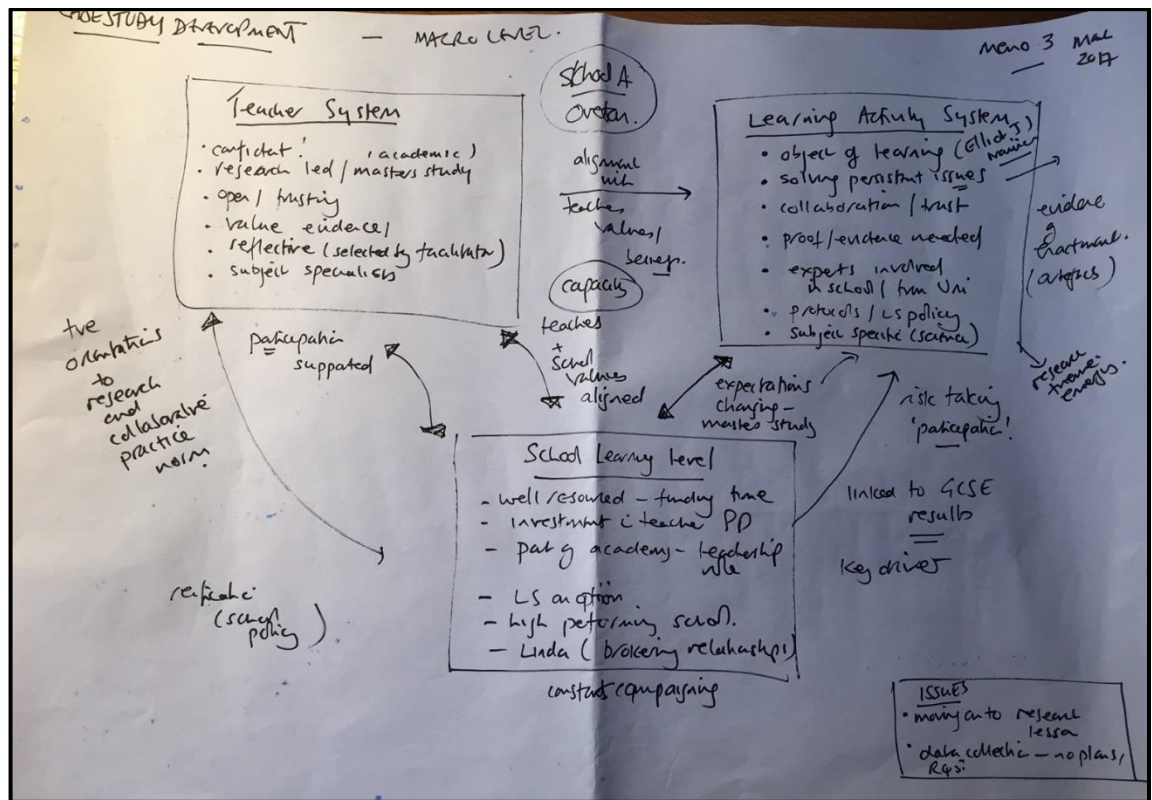 CASE STUDY DEVELOPMENT — MACRO LEVEL.
Memo 3 Mar
2017
School A
Teacher System
• confident!
(academic)
• research led / masters study
• open / trusting
• value evidence /
• reflective (selected by facilitator)
• subject specialists
alignment
with
teachers
values /
beliefs.
capacity
teachers
+
school
values
aligned
Learning Activity System
• object of learning (Elliot J)
• solving persistent issues
• collaboration / trust
• proof / evidence needed
• experts involved
in school / from Uni
• protocols / LS policy
• subject specific (science)
evidence
of
enactment.
(artefacts)
research
theme
emerges.
+ve
orientations
to
research
and
collaborative
practice
norm
participation
supported
expectations
changing –
masters study
risk taking
'participation'.
School Learning Level
– well resourced – funding time
– investment in teacher PD
– part of academy – leadership
role
– LS an option
– high performing school.
– Linda (brokering relationships)
constant comparising
linked to GCSE
results
key driver
reification
(school
policy)
ISSUES
• moving on to research
lesson
• data collection – no plans,
RQs.